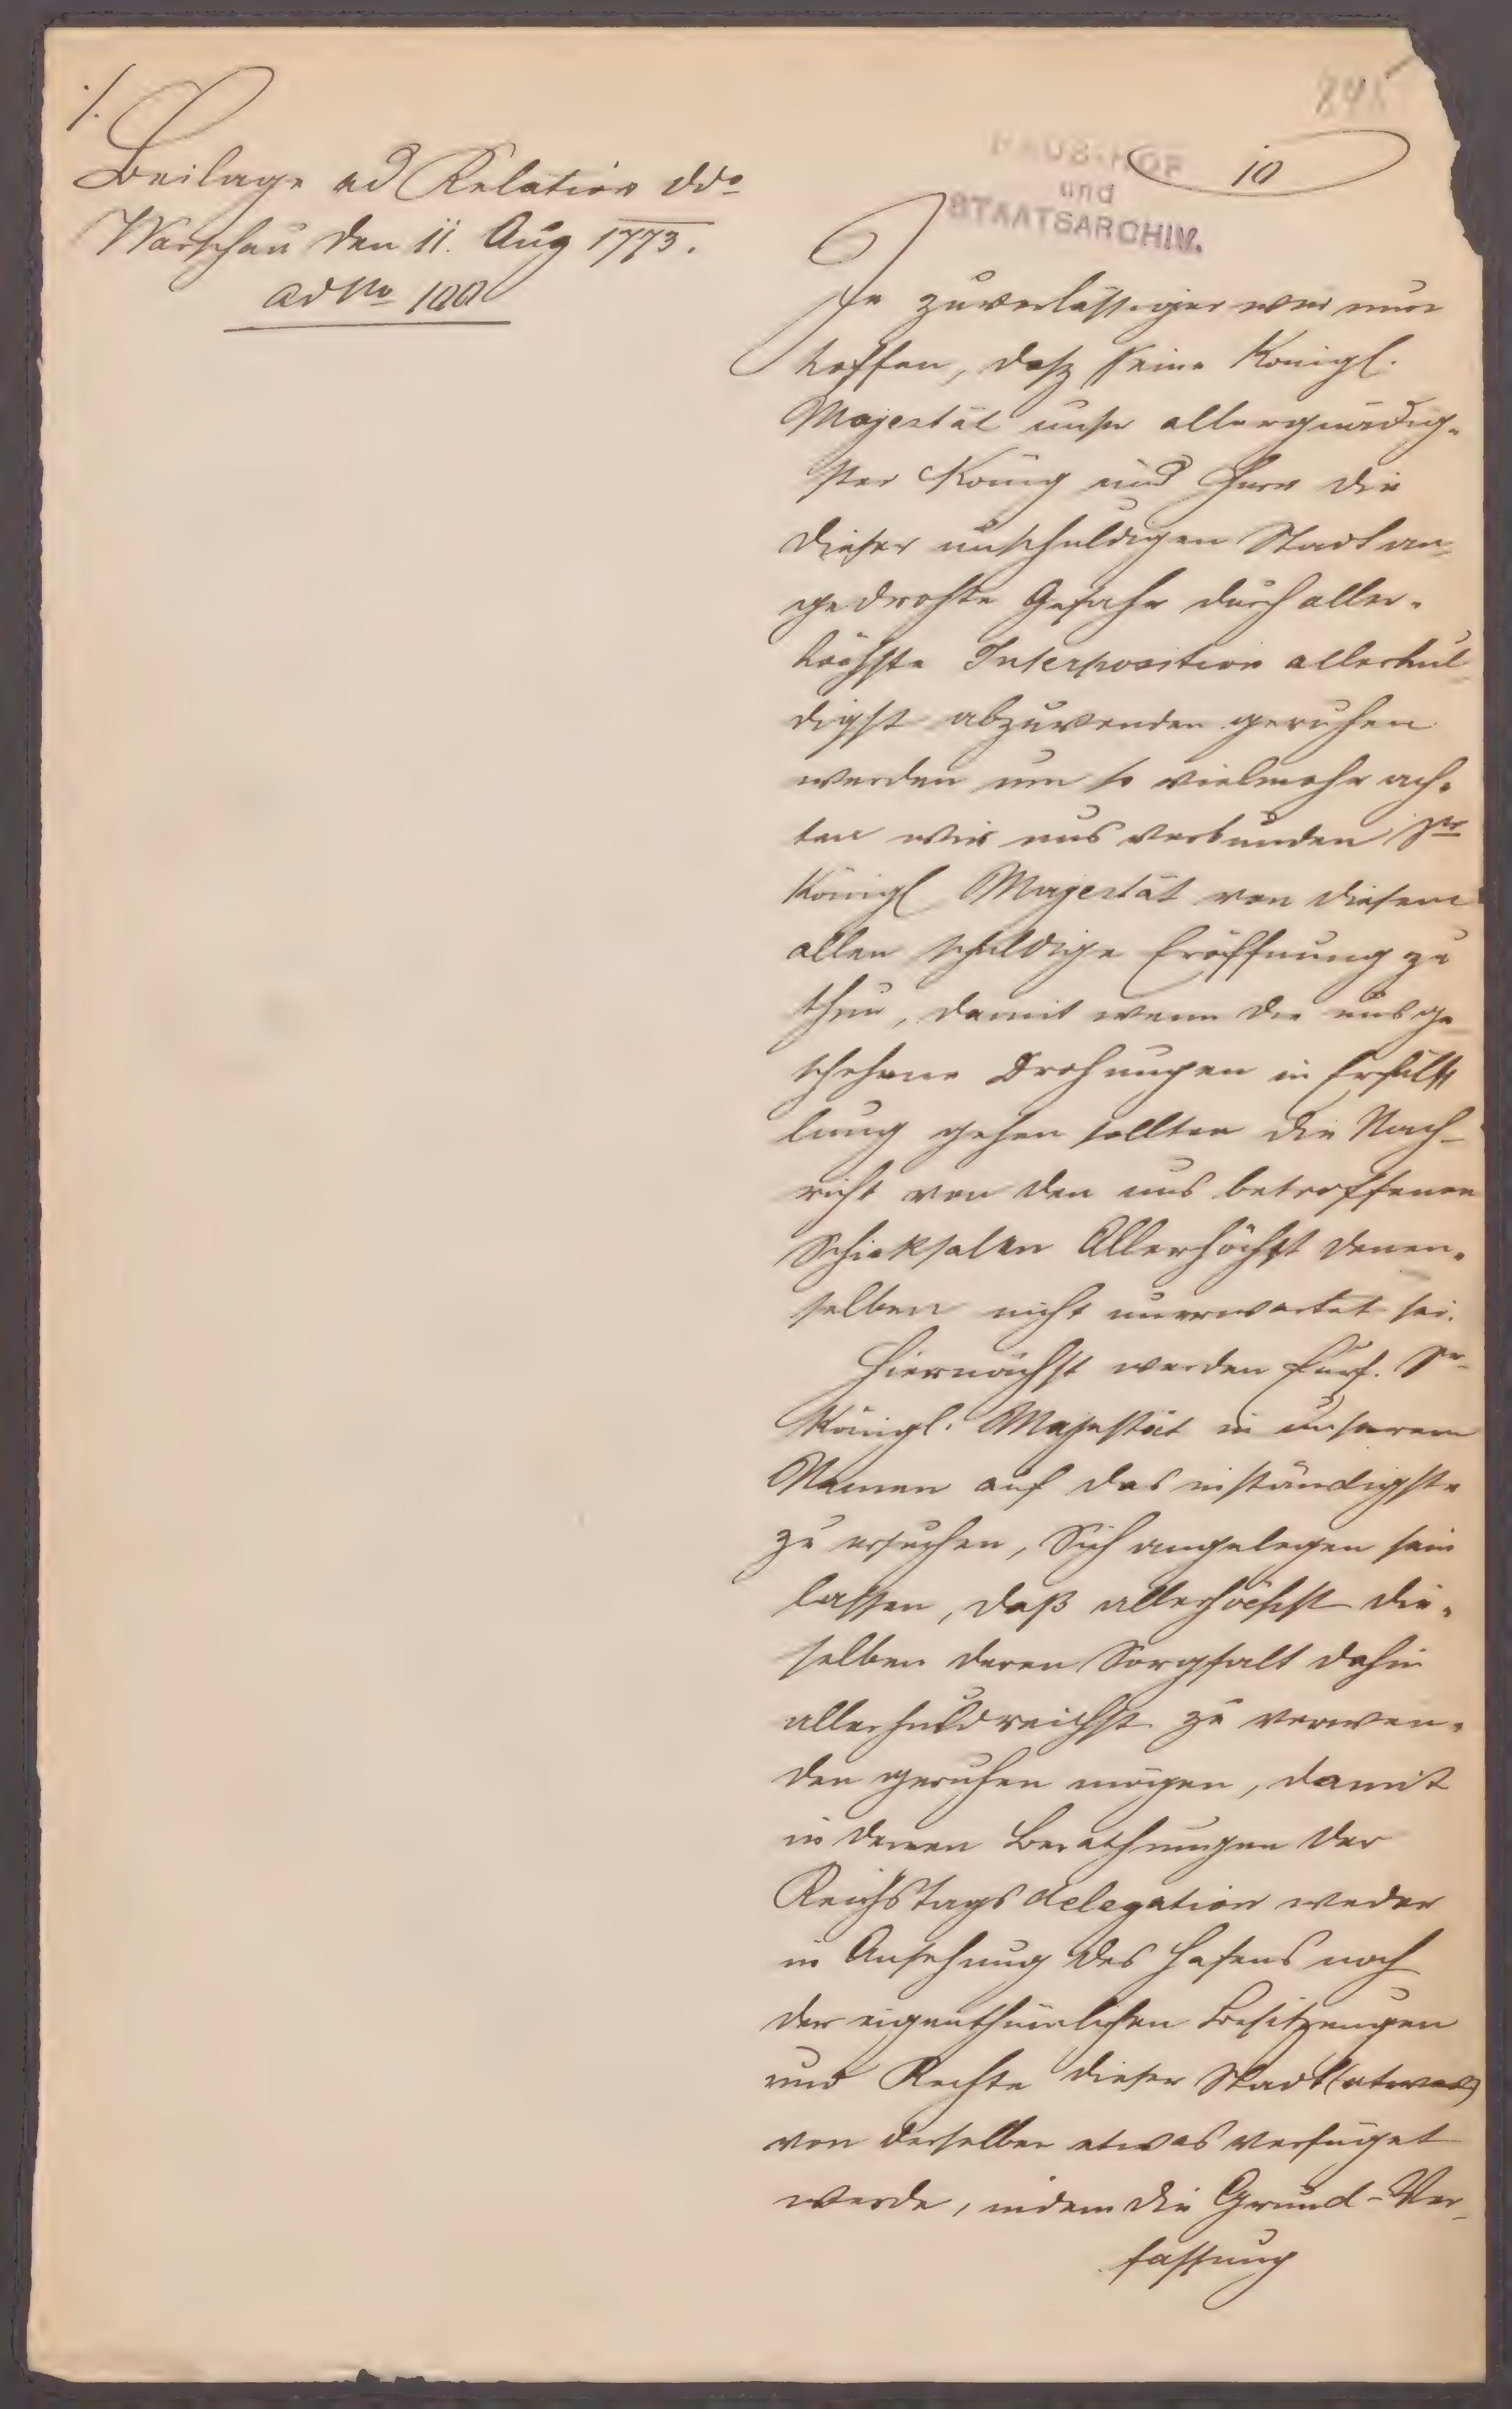 ./.
Beilage ad Relation ddo
Warschau den 11. Aug 1773.
ad No 100
HAUS-HOF
und
STAATSARCHIV.
10
Je zuverlässiger wir nun
hoffen, daß Seine Königl.
Majestät unser allergnädig-
ster König und Herr die
dieser unschuldigen Stadt an-
gedrohte Gefahr durch aller-
höchste Interposition allerhul-
digst abzuwenden geruhen
werden um so vielmehr ach-
ten wir uns verbunden Sr
Königl Majestät von diesem
allen schuldige Eröffnung zu
thun, damit wenn die uns ge-
schehene Drohungen in Erfül-
lung gehen sollten die Nach-
richt von den uns betroffenen
Schicksalen Allerhöchst denen-
selben nicht unerwartet sei.
Hiernächst werden Sr
Königl. Majestät in unserem
Namen auf das inständigste
zu ersuchen, Sich angelegen sein
lassen, daß allerhöchst die-
selben deren Sorgfalt dahin
allerhuldreichst zu verwen-
den geruhen mögen, damit
in denen Berathungen der
Reichstags delegation weder
in Ansehung des Hafens noch
der eigenthümlichen Besitzungen
und Rechte dieser Stadt (etwas)
von derselben etwas verfüget
werde, indem die Grund-Ver-
fassung